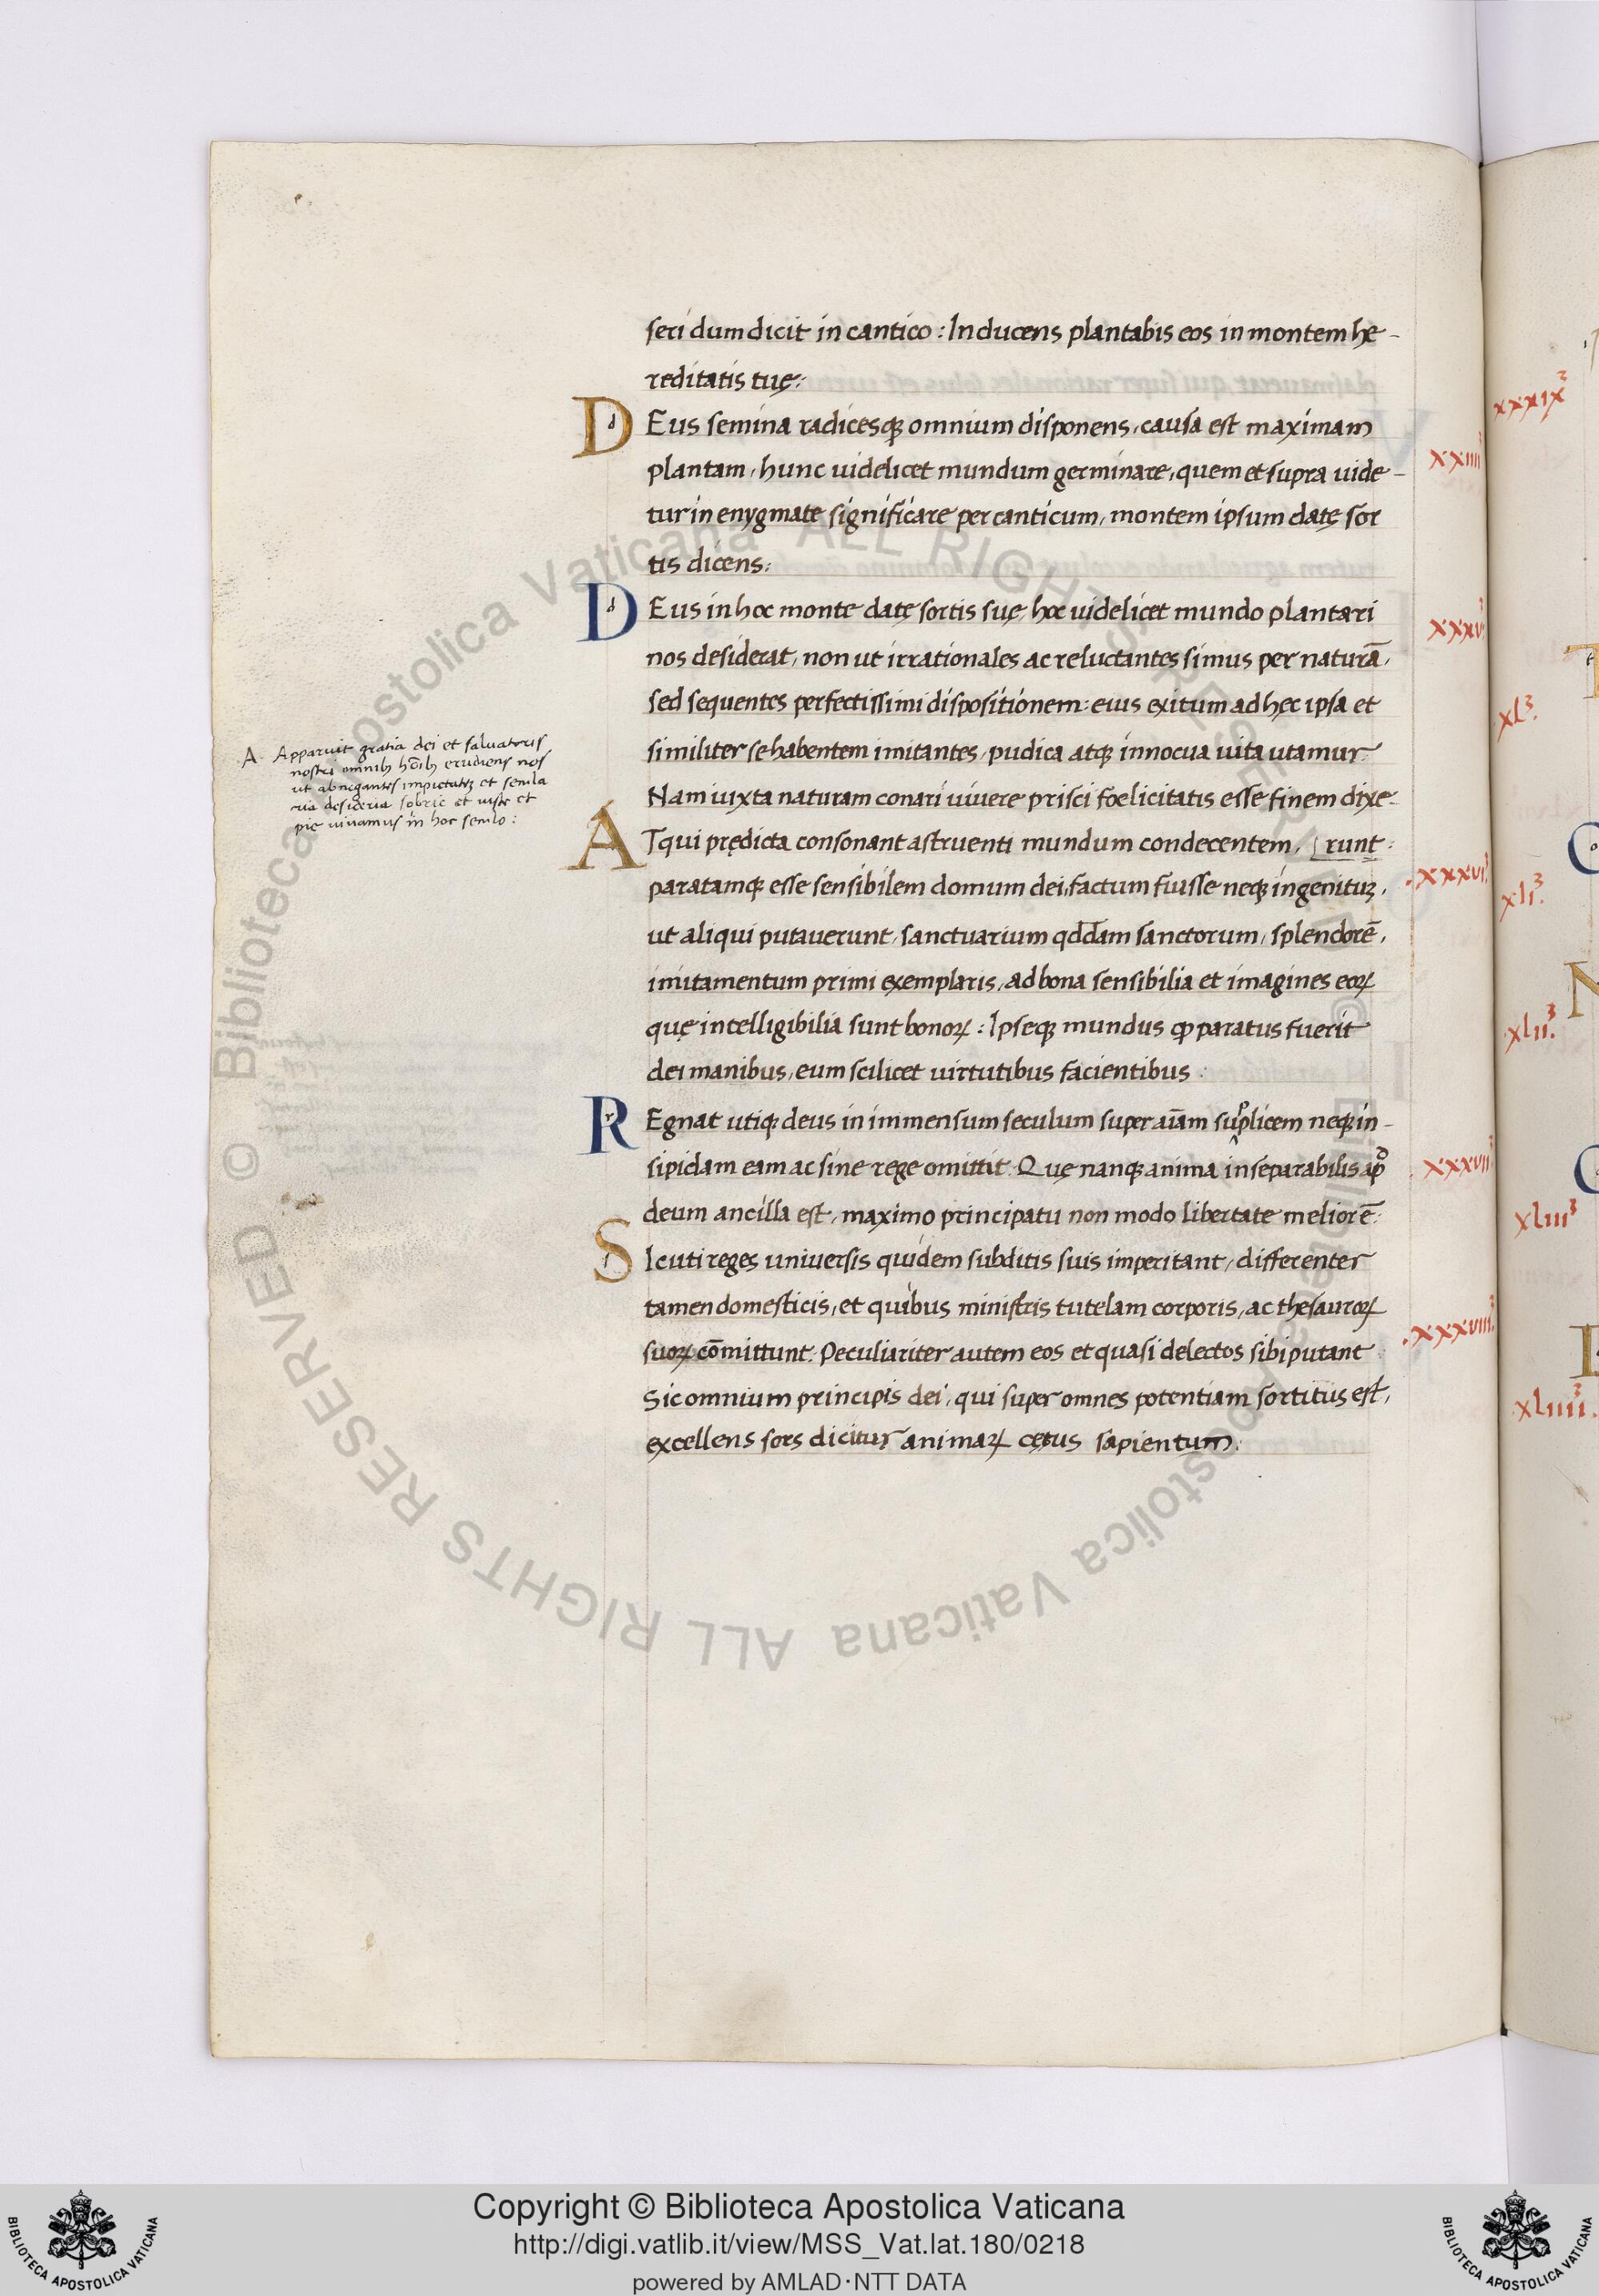 seri dum dicit in cantico : Inducens plantabis eos in montem he-
reditatis tuę:
D Eus semina radicesqꝫ omnium disponens, causa est maximam
plantam, hunc uidelicet mundum germinare, quem et supra uide-
tur in enygmate significare per canticum, montem ipsum datę sor
tis dicens:
D Eus in hoc monte datę sortis suę, hoc uidelicet mundo plantari
nos desiderat, non ut irrationales ac reluctantes simus per naturā,
sed sequentes perfectissimi dispositionem: eius exitum ad hęc ipsa et
similiter se habentem imitantes, pudica atqꝫ innocua uita utamur
Nam iuxta naturam conari uiuere prisci foelicitatis esse finem dixe-
A Tqui prędicta consonant astruenti mundum condecentem, [runt:
paratamqꝫ esse sensibilem domum dei, factum fuisse neqꝫ ingenituꝫ,
ut aliqui putauerunt, sanctuarium qddam sanctorum, splendorē,
imitamentum primi exemplaris, ad bona sensibilia et imagines eoꝝ
quę intelligibilia sunt bonoꝝ : Ipseqꝫ mundus ꝙ paratus fuerit
dei manibus, eum scilicet uirtutibus facientibus :
R Egnat utiqꝫ deus in immensum seculum super aīam supplicem neqꝫ in-
sipidam eam ac sine rege omittit. Quę nanqꝫ anima inseparabilis apᵈ
deum ancilla est, maximo principatu non modo libertate meliorē:
S Icuti reges uniuersis quidem subditis suis imperitant, differenter
tamen domesticis, et quibus ministris tutelam corporis, ac thesauroꝝ
suoꝝ cōmittunt: Peculiariter autem eos et quasi delectos sibi putant
Sic omnium principis dei, qui super omnes potentiam sortitus est,
excellens sors dicitur animaꝝ cętus sapientum:
A. Apparuit gratia dei et saluatoris
nostri omnibꝫ hōibꝫ erudiens nos
ut abnegantes impietatēꝫ et secula
ria desideria sobrie et iuste et
pie uiuamus in hoc seculo :
xxiiii
xxxv
xxxvi
xxxvii
xxxviii
xxxix
xl
xli
xlii
xliii
xliiii
© Biblioteca Apostolica Vaticana ALL RIGHTS RESERVED © Biblioteca Apostolica Vaticana ALL RIGHTS RESERVED
BIBLIOTECA APOSTOLICA VATICANA
Copyright © Biblioteca Apostolica Vaticana
http://digi.vatlib.it/view/MSS_Vat.lat.180/0218
powered by AMLAD·NTT DATA
BIBLIOTECA APOSTOLICA VATICANA